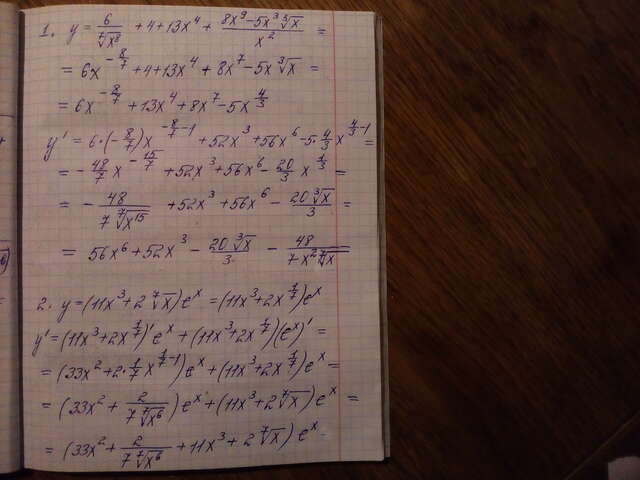 1. y = 6/⁷√x⁸ + 4 + 13x⁴ + (8x⁹ - 5x³ ³√x)/x² =
= 6x^(-8/7) + 4 + 13x⁴ + 8x⁷ - 5x ³√x =
= 6x^(-8/7) + 13x⁴ + 8x⁷ - 5x^(4/3)
y' = 6·(-8/7)x^(-8/7-1) + 52x³ + 56x⁶ - 5·4/3 x^(4/3-1) =
= -48/7 x^(-15/7) + 52x³ + 56x⁶ - 20/3 x^(1/3) =
= - 48/(7 ⁷√x¹⁵) + 52x³ + 56x⁶ - (20 ³√x)/3 =
= 56x⁶ + 52x³ - (20 ³√x)/3 - 48/(7x² ⁷√x)
2. y = (11x³ + 2 ⁷√x)eˣ = (11x³ + 2x^(1/7))eˣ
y' = (11x³ + 2x^(1/7))'eˣ + (11x³ + 2x^(1/7))(eˣ)' =
= (33x² + 2·1/7 x^(1/7-1))eˣ + (11x³ + 2x^(1/7))eˣ =
= (33x² + 2/(7 ⁷√x⁶))eˣ + (11x³ + 2 ⁷√x)eˣ =
= (33x² + 2/(7 ⁷√x⁶) + 11x³ + 2 ⁷√x)eˣ.